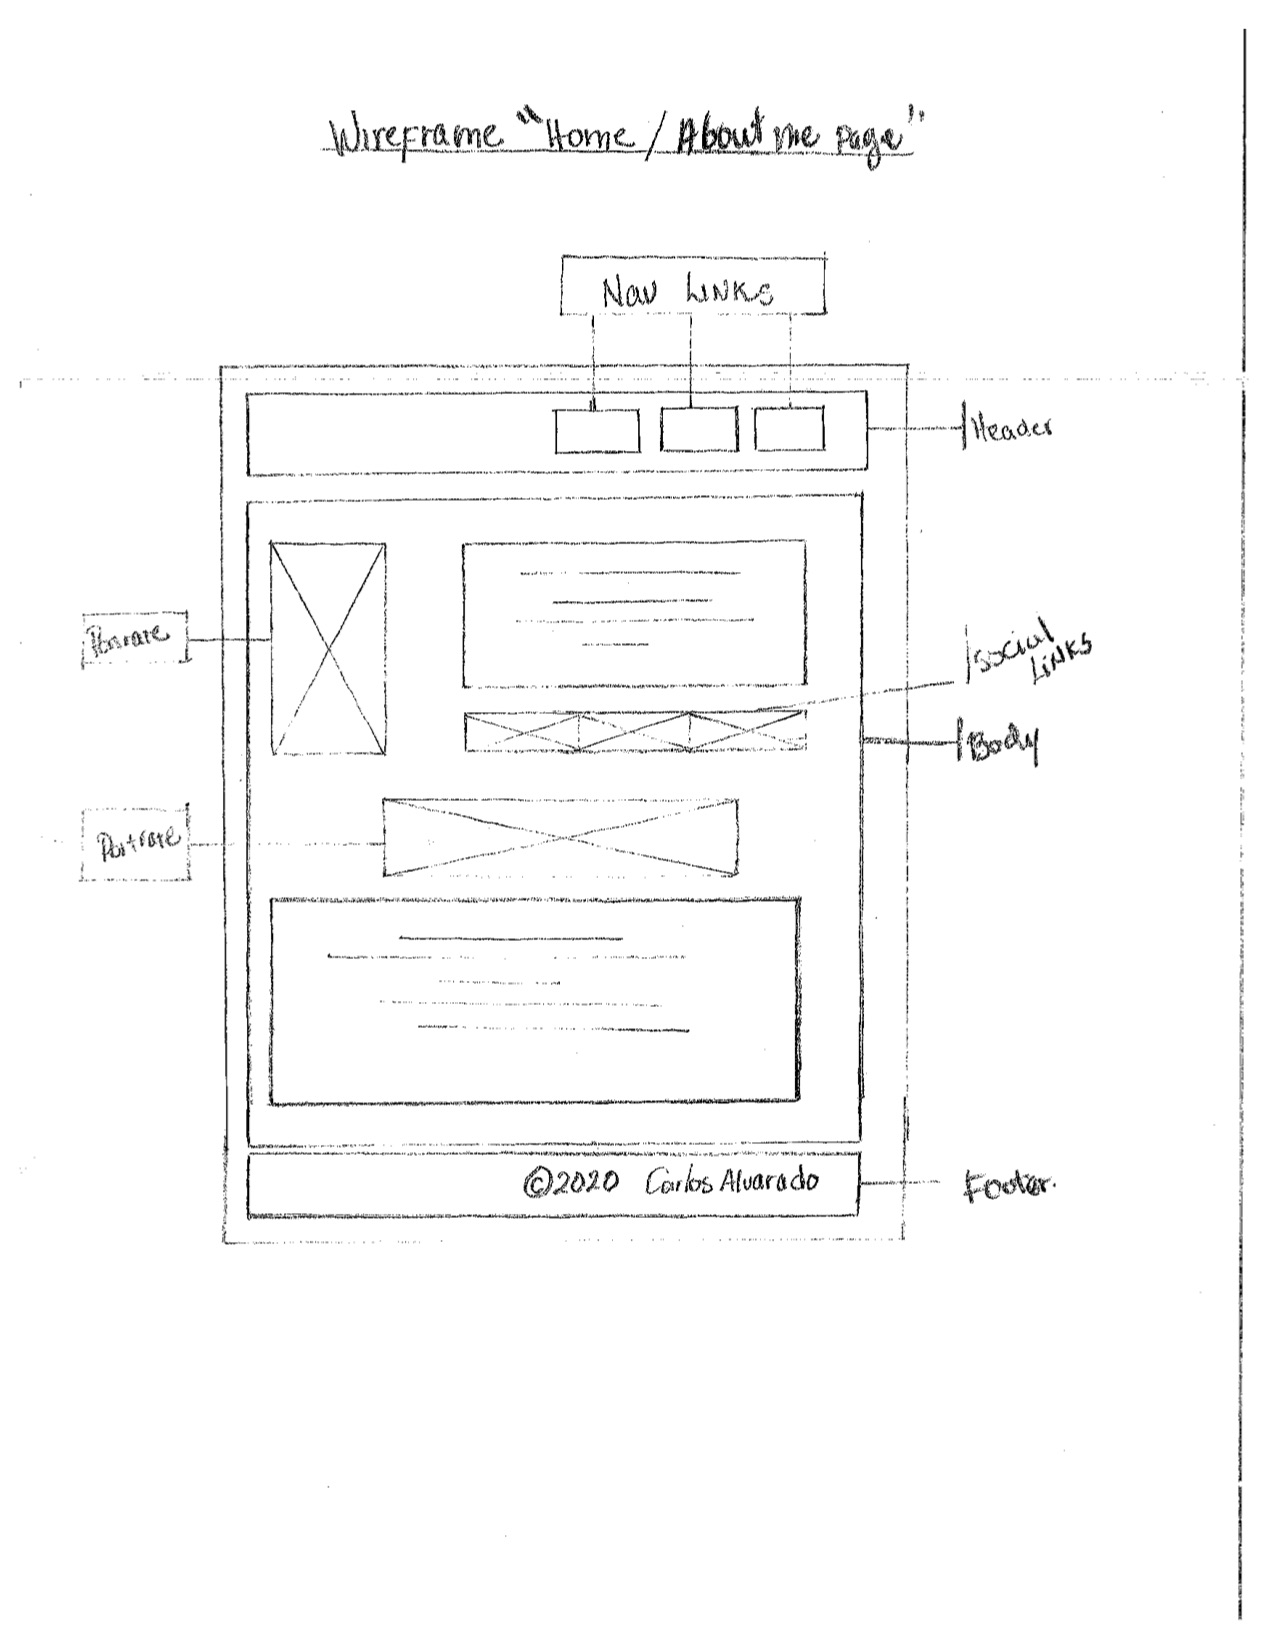 Wireframe "Home / About me page"
Nav LINKS
Header
Portrate
social
LINKS
Body
Portrate
©2020 Carlos Alvarado
Footer.